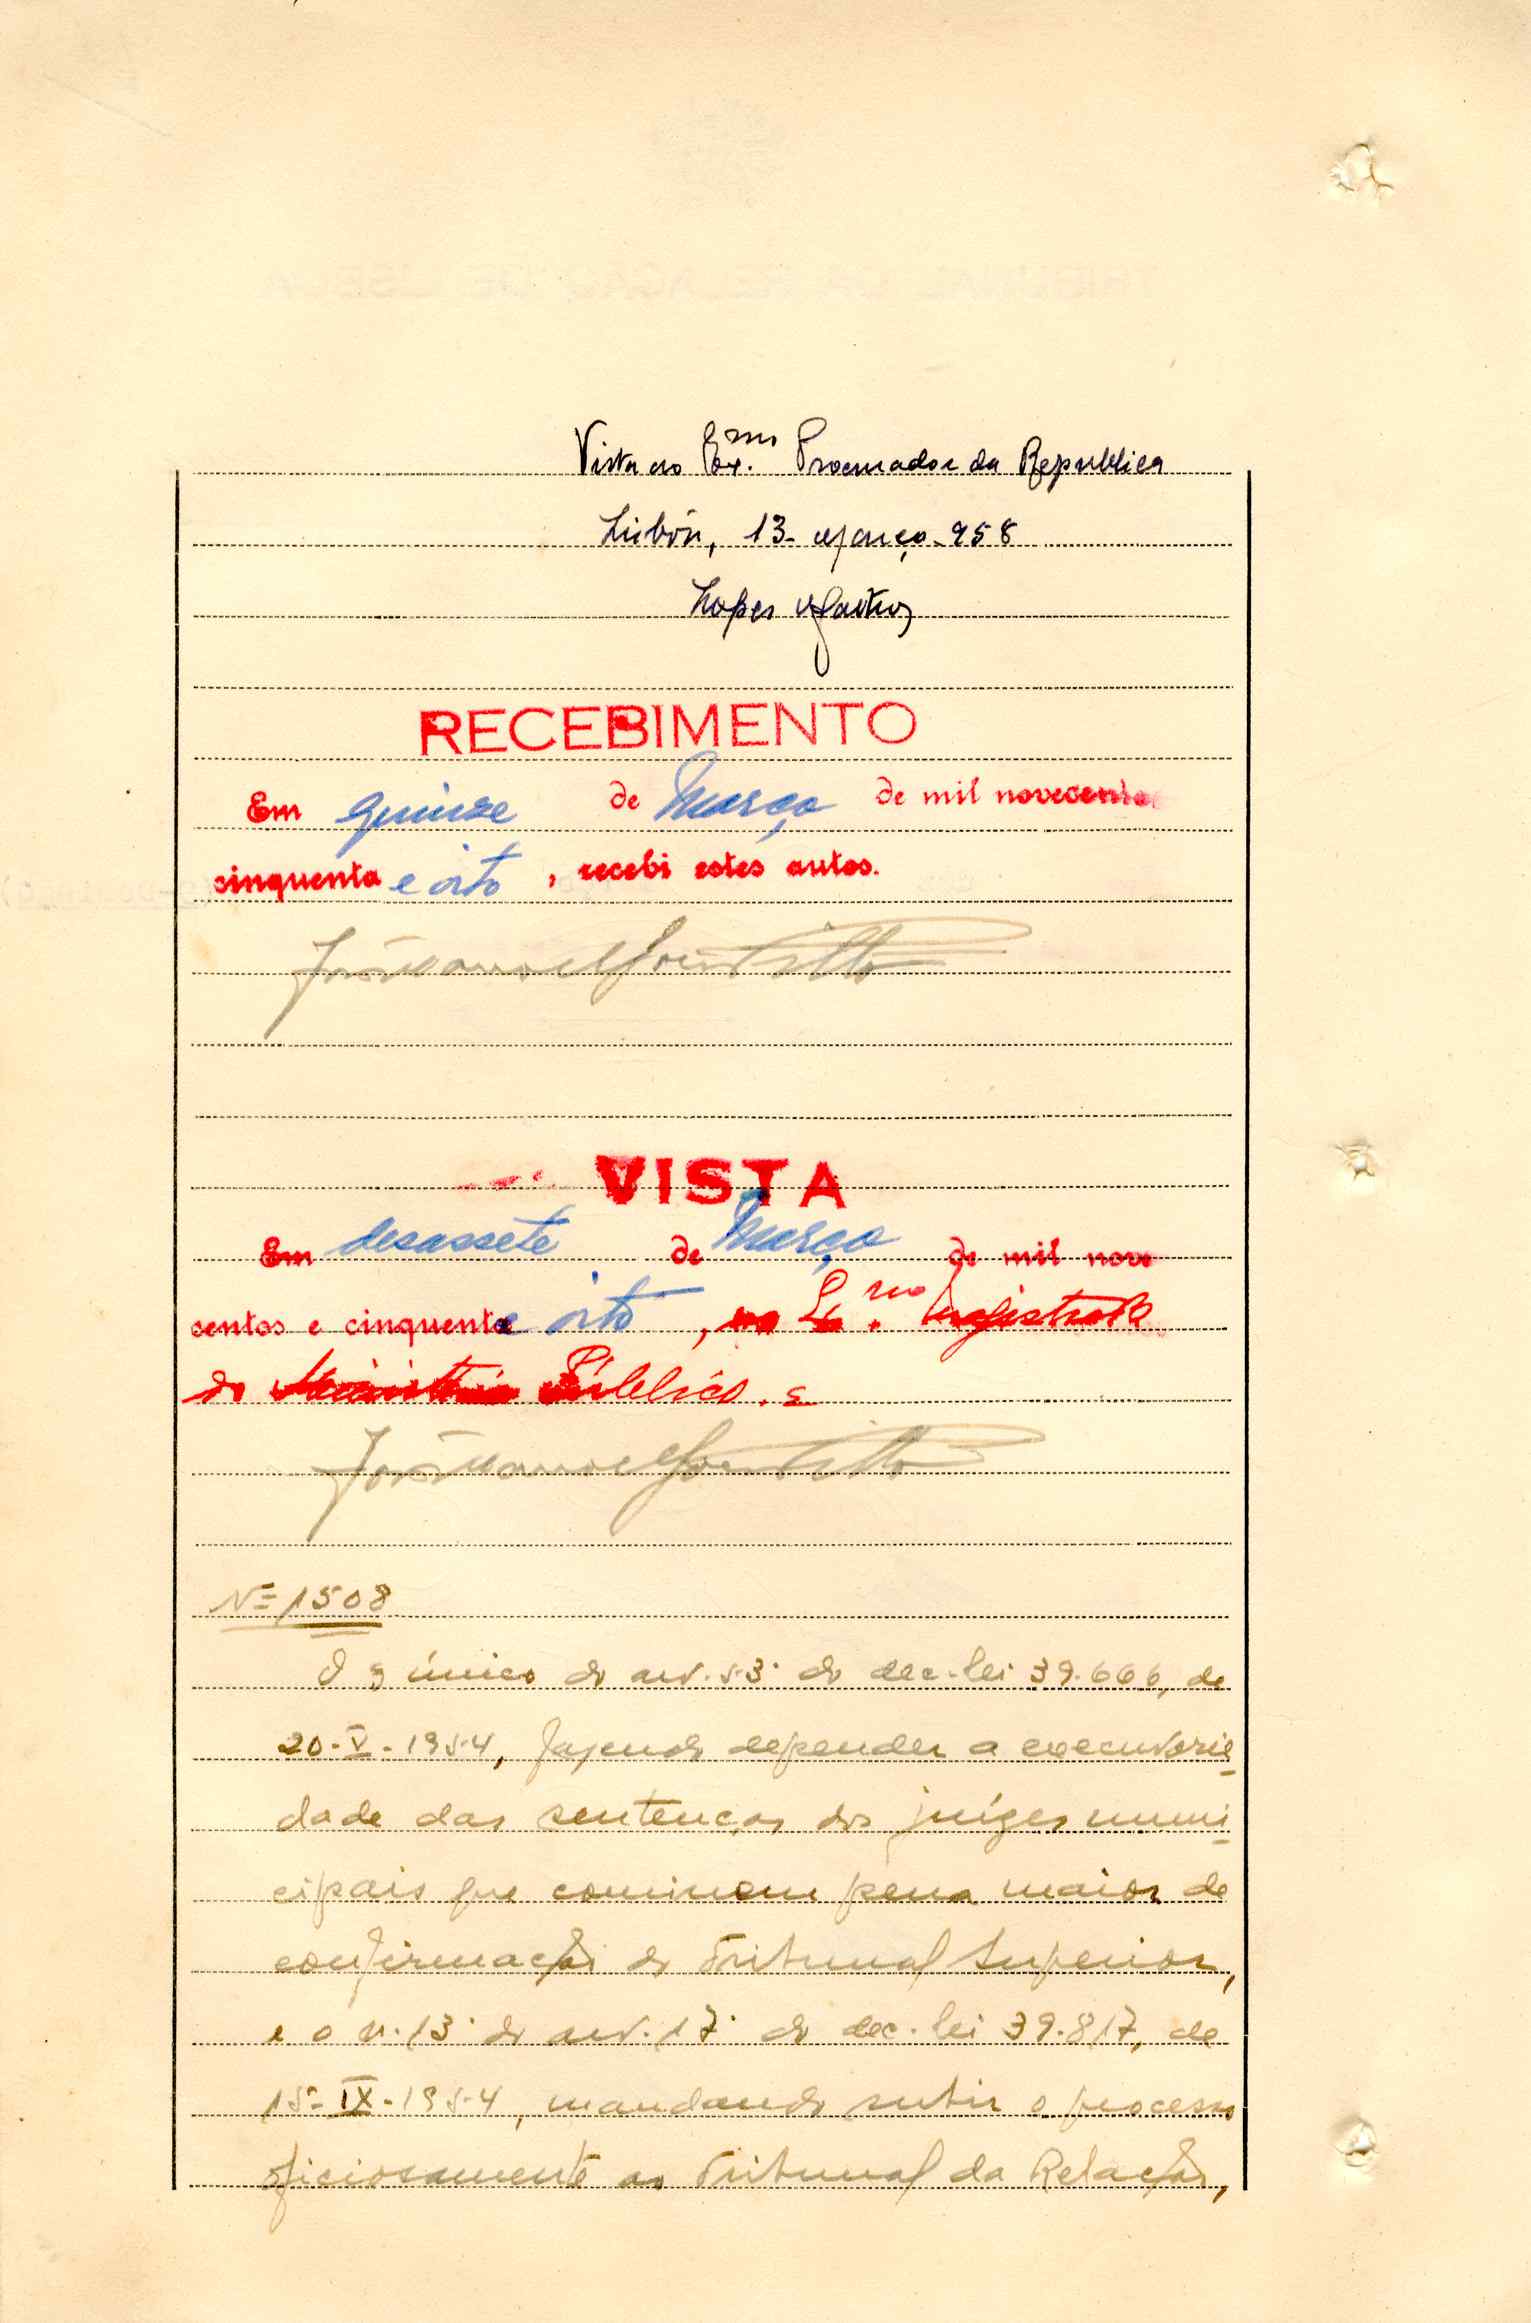 Vista ao Ex.mo Procurador da Republica
Lisbôa, 13-Março-958
Lopes
RECEBIMENTO
Em quinze de Março de mil novecentos
cinquenta e oito, recebi estes autos.
VISTA
Em desassete de Março de mil nove
centos e cinquenta e oito, ao Ex.mo Magistrado
do Ministério Público.
Nº 1508
O § único do art. 53º do dec.-lei 39.666, de
20-V-1954, fazendo depender a executorie
dade das sentenças dos juízes muni
cipais que cominem pena maior de
confirmação do Tribunal Superior,
e o n.13º do art. 17º do dec.-lei 39.817, de
15-IX-1954, mandando subir o processo
oficiosamente ao Tribunal da Relação,